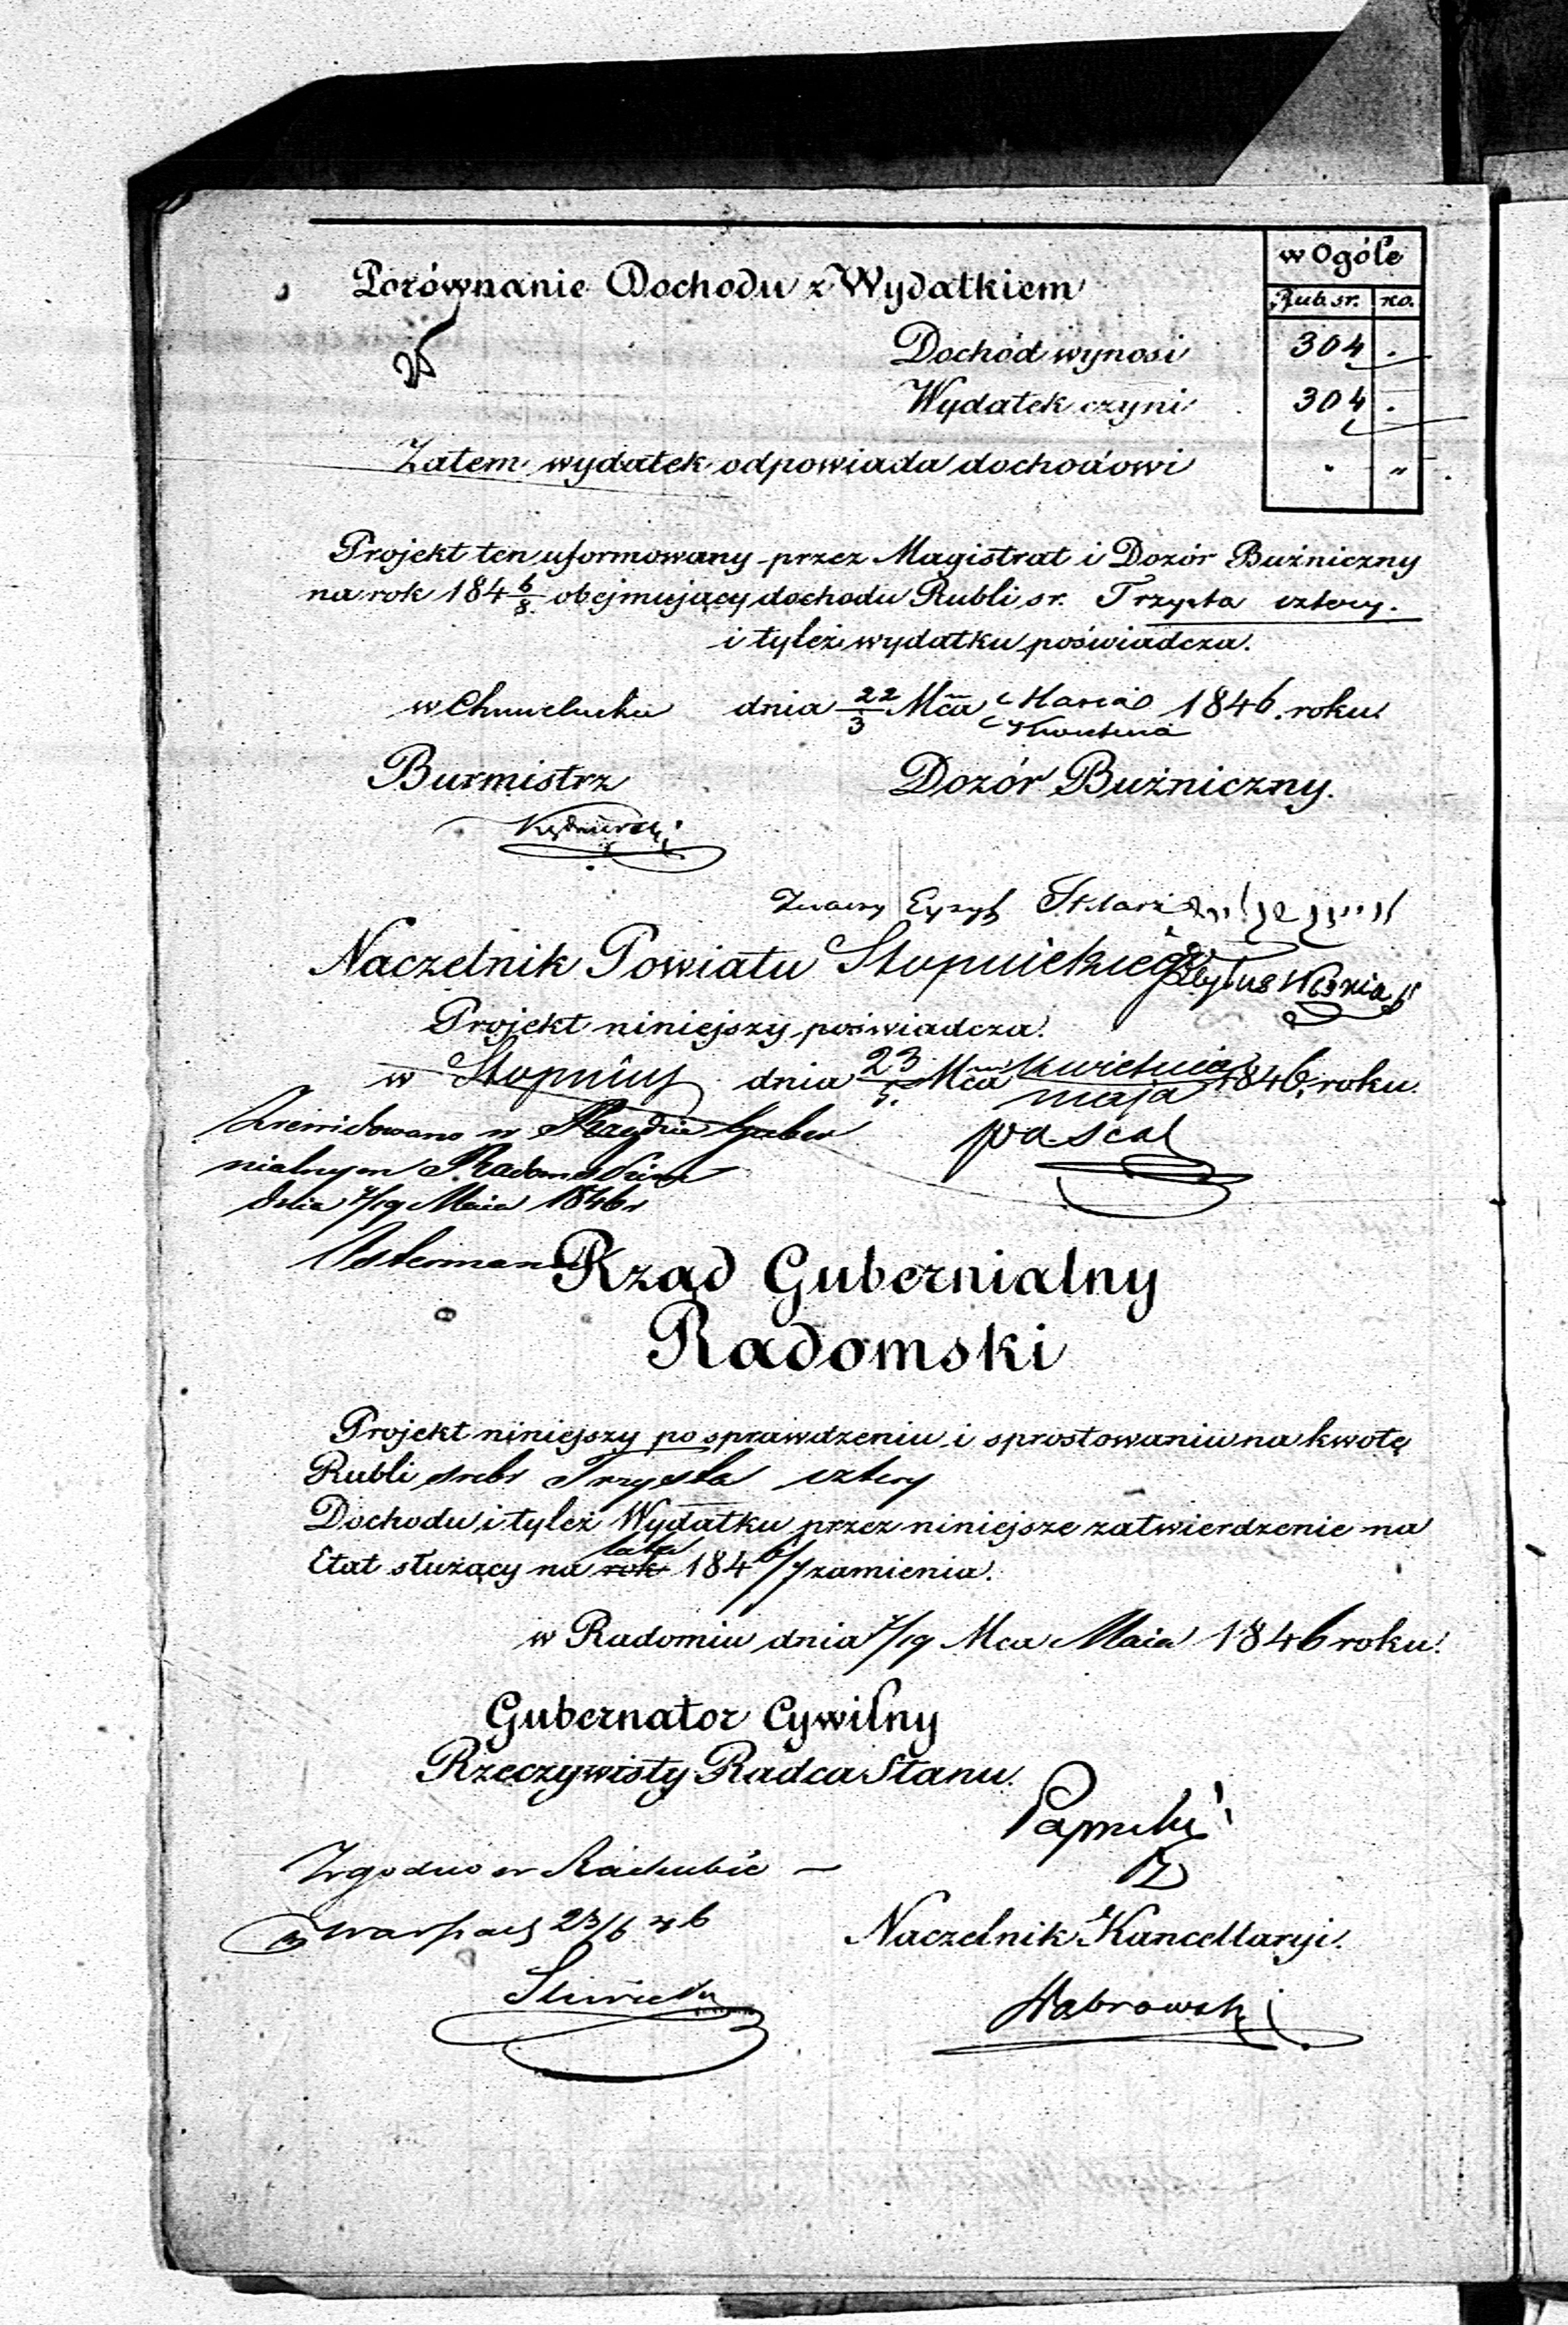 w Ogóle
Porównanie Dochodu z Wydatkiem
Rub. sr. ko.
Dochód wynosi 304 .
Wydatek czyni 304 .
Zatem wydatek odpowiada dochodowi . „
Projekt ten uformowany przez Magistrat i Dozór Bużniczny
na rok 184 6/8 obejmujący dochodu Rubli sr. Trzysta cztery.
i tyleż wydatku poświadcza.
w Chmielniku dnia 22/3 Mca Marca/Kwietnia 1846. roku.
Burmistrz Dozór Bużniczny.
Naczelnik Powiatu Stopnickiego
Projekt niniejszy poświadcza.
w Stopnicy dnia 23/5. Mca Kwietnia/maja 1846. roku.
Zrewidowano w Rządzie Guber
nialnym Radomskim
dnia 7/19 Maia 1846 r
Rząd Gubernialny
Radomski
Projekt niniejszy po sprawdzeniu i sprostowaniu na kwotę
Rubli srebr Trzysta cztery
Dochodu i tyleż Wydatku przez niniejsze zatwierdzenie na
lata
Etat służący na rok 184 6/8 zamienia.
w Radomiu dnia 7/19 Mca Maia 1846 roku.
Gubernator Cywilny
Rzeczywisty Radca Stanu.
Zgodno w Rachubie
23/6 46
Naczelnik Kancellaryi.